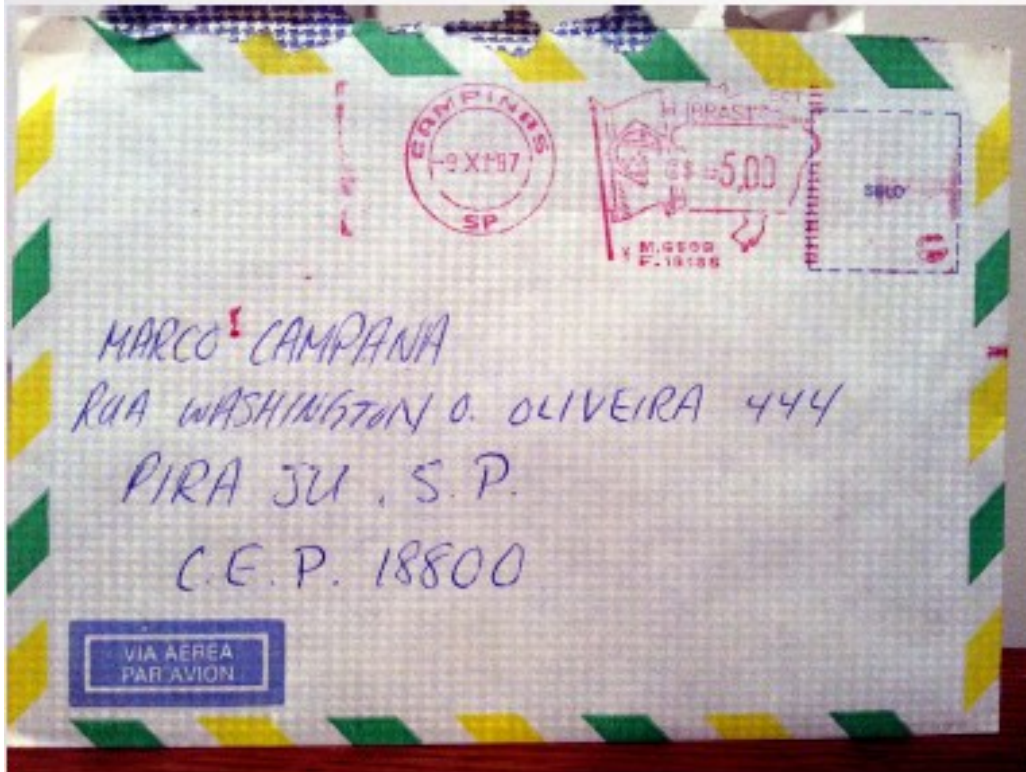 CAMPINAS
-9 XI 87
SP
BRASIL
5,00
SELO
MARCO CAMPANA
RUA WASHINGTON O. OLIVEIRA 444
PIRA JU . S. P.
C.E.P. 18800
VIA AEREA
PAR AVION